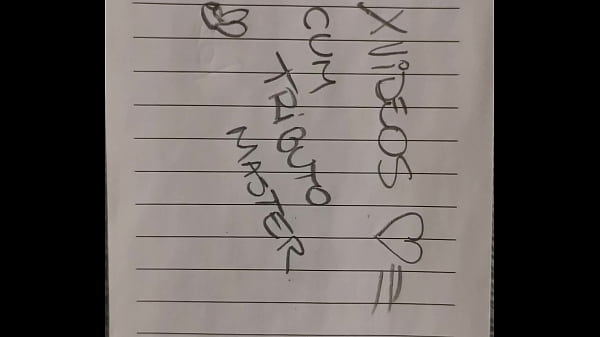 XVIDEOS
CUM
TRIBUTO
MASTER